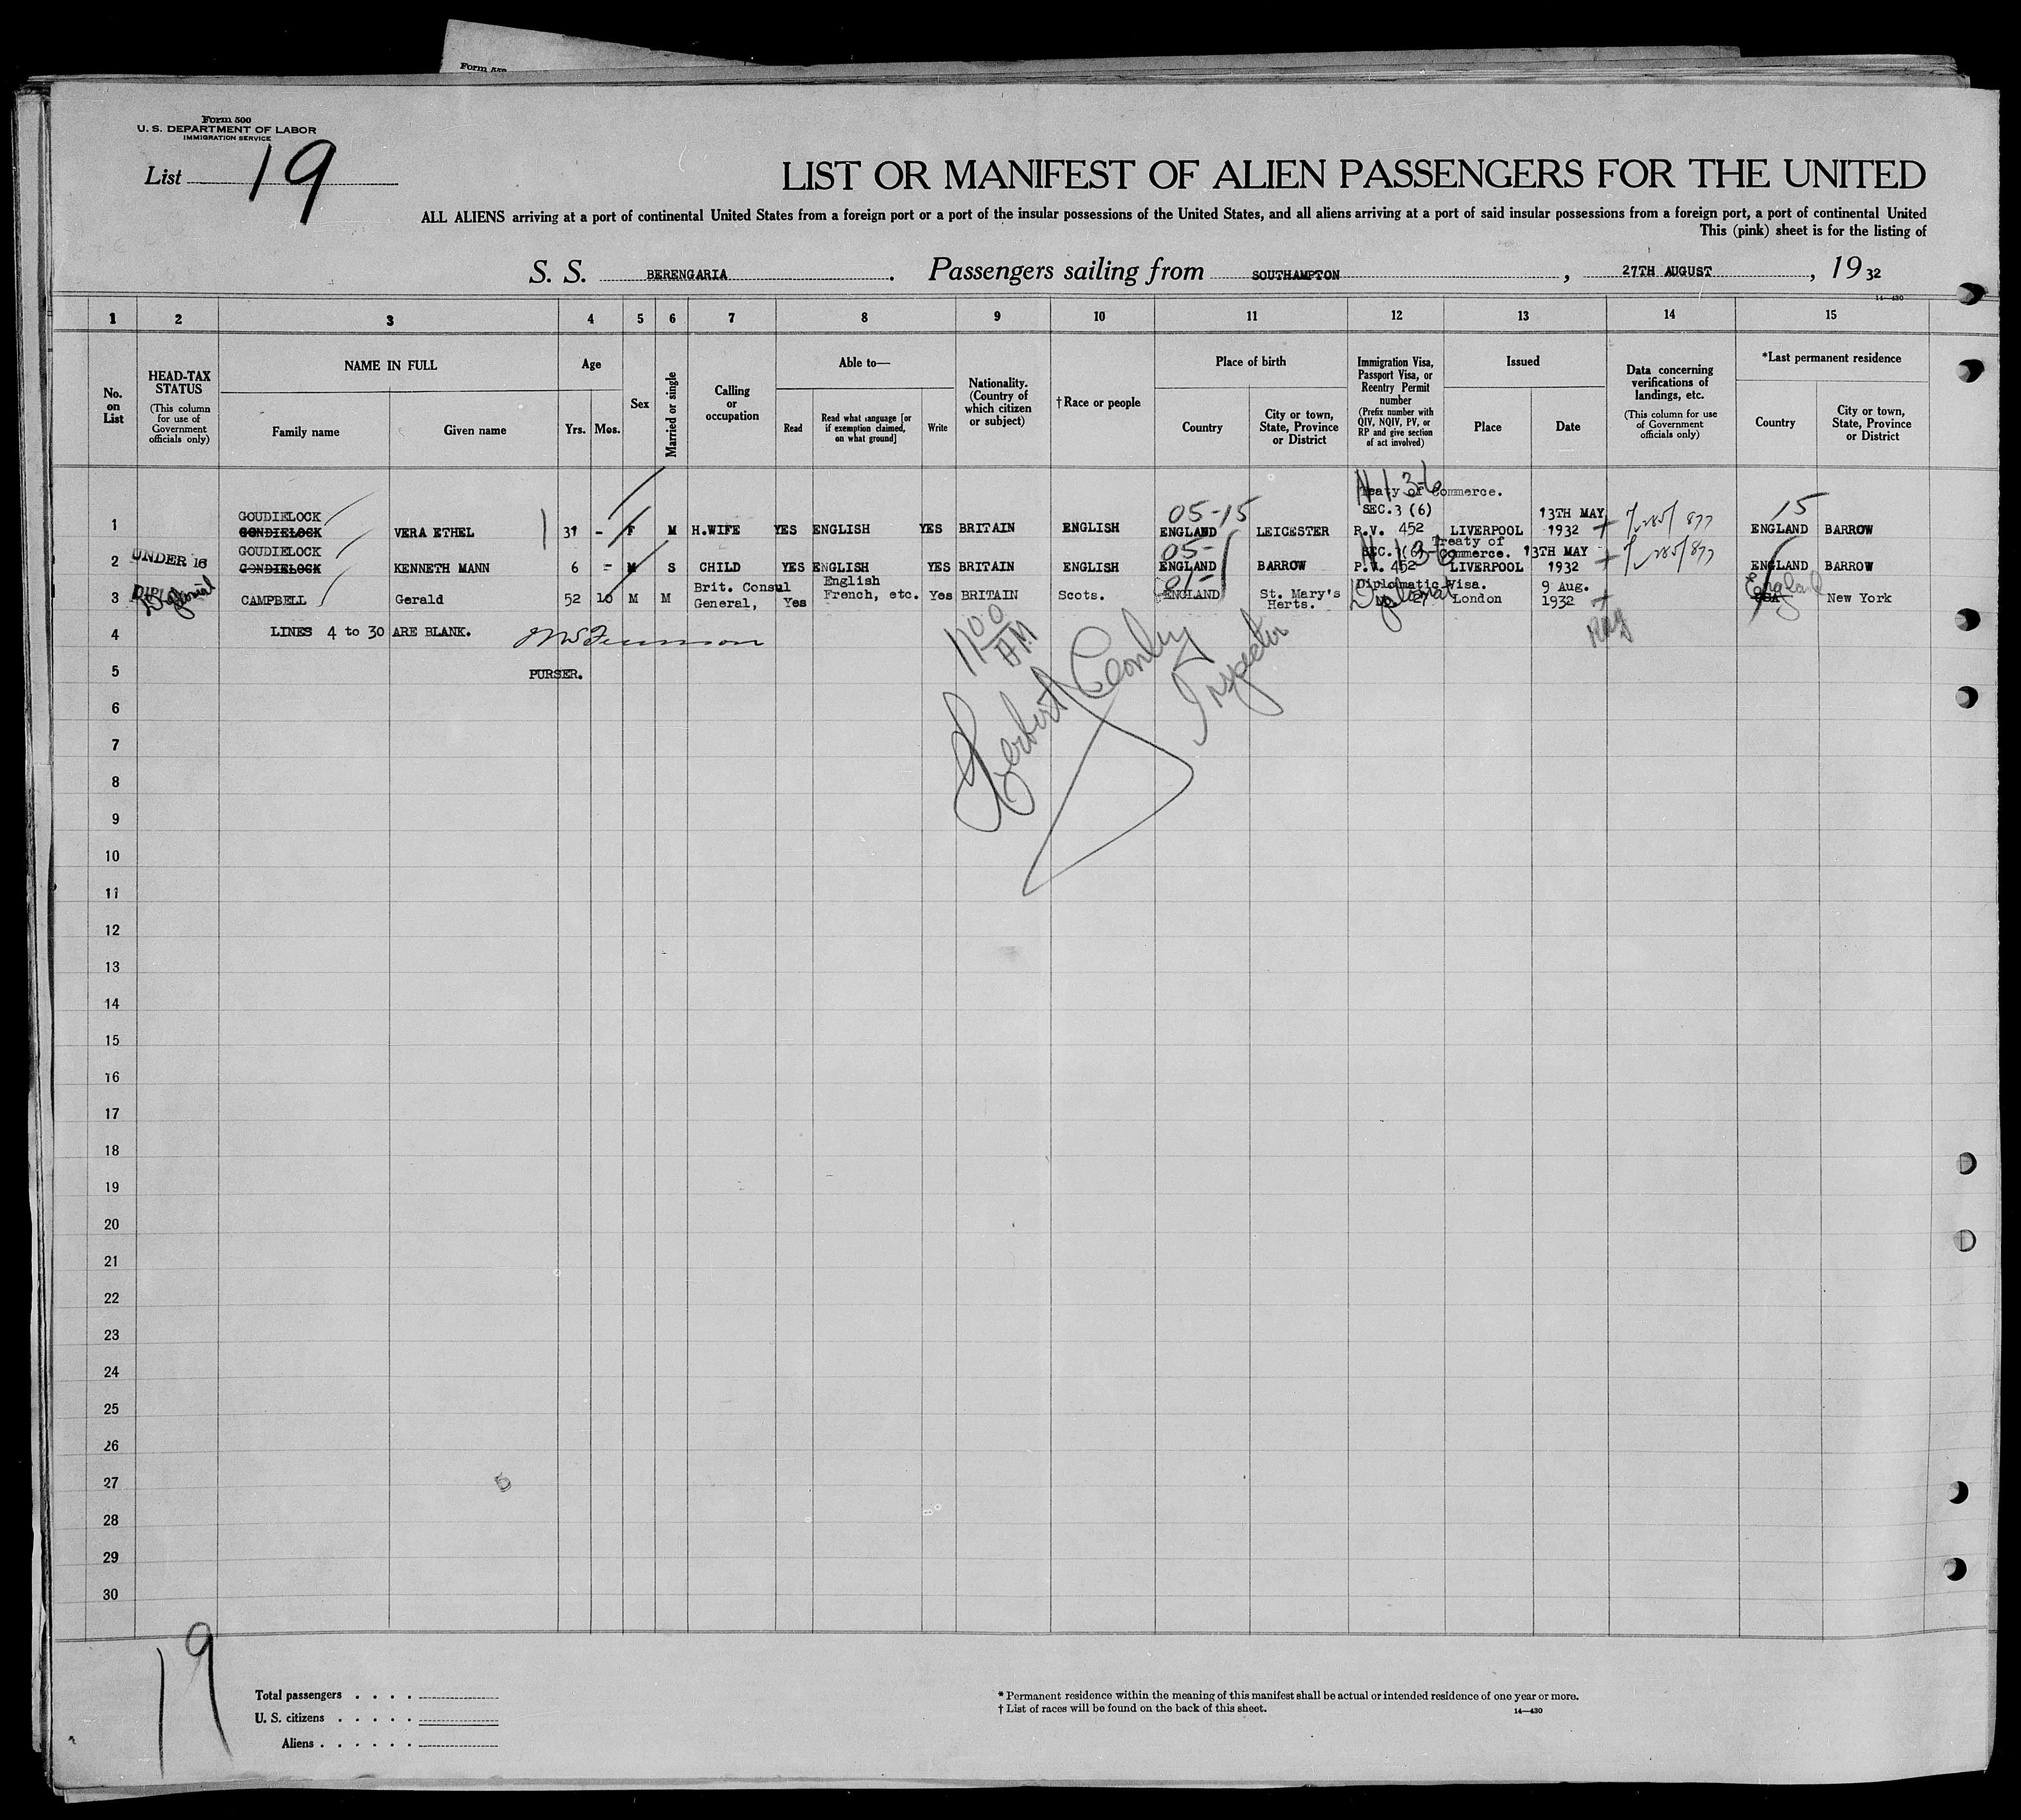 Form 500
U. S. DEPARTMENT OF LABOR
IMMIGRATION SERVICE
List 19
LIST OR MANIFEST OF ALIEN PASSENGERS FOR THE UNITED
ALL ALIENS arriving at a port of continental United States from a foreign port or a port of the insular possessions of the United States, and all aliens arriving at a port of said insular possessions from a foreign port, a port of continental United
This (pink) sheet is for the listing of
S. S. BERENGARIA. Passengers sailing from SOUTHAMPTON, 27TH AUGUST, 1932
14—430
1 2 3 4 5 6 7 8 9 10 11 12 13 14 15
No. on List
HEAD-TAX STATUS
(This column for use of Government officials only)
NAME IN FULL
Family name
Given name
Age
Yrs. Mos.
Sex
Married or single
Calling or occupation
Able to—
Read
Read what language [or if exemption claimed, on what ground]
Write
Nationality. (Country of which citizen or subject)
†Race or people
Place of birth
Country
City or town, State, Province or District
Immigration Visa, Passport Visa, or Reentry Permit number
(Prefix number with QIV, NQIV, PV, or RP and give section of act involved)
Issued
Place
Date
Data concerning verifications of landings, etc.
(This column for use of Government officials only)
*Last permanent residence
Country
City or town, State, Province or District
Treaty of Commerce.
05-15 SEC.3 (6) 13TH MAY 15
GOUDIELOCK
1 GONDIELOCK VERA ETHEL 31 - F M H.WIFE YES ENGLISH YES BRITAIN ENGLISH ENGLAND LEICESTER P.V. 452 LIVERPOOL 1932 ENGLAND BARROW
GOUDIELOCK 05- Treaty of Commerce. 13TH MAY
2 UNDER 16 GONDIELOCK KENNETH MANN 6 - M S CHILD YES ENGLISH YES BRITAIN ENGLISH ENGLAND BARROW P.V. 452 LIVERPOOL 1932 ENGLAND BARROW
Brit. Consul English 01- Diplomatic Visa. 9 Aug. England
3 Diplomat CAMPBELL Gerald 52 10 M M General, Yes French, etc. Yes BRITAIN Scots. ENGLAND St. Mary's Herts. Diplomat No. 27 London 1932 USA New York
4 LINES 4 to 30 ARE BLANK.
5 PURSER.
11 00 AM
Herbert Inspector
6
7
8
9
10
11
12
13
14
15
16
17
18
19
20
21
22
23
24
25
26
27
28
29
30
19
Total passengers
U. S. citizens
Aliens
* Permanent residence within the meaning of this manifest shall be actual or intended residence of one year or more.
† List of races will be found on the back of this sheet.
14—430